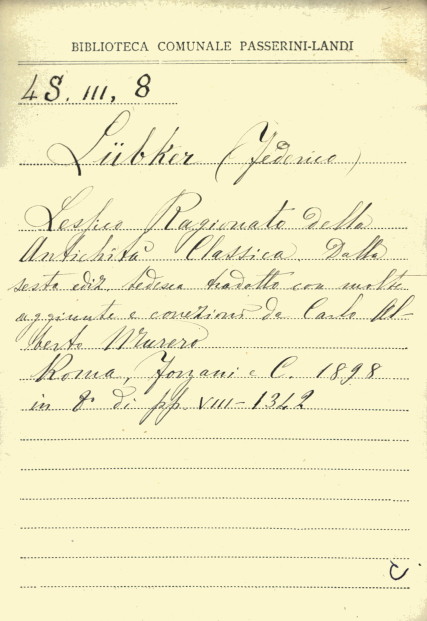 BIBLIOTECA COMUNALE PASSERINI-LANDI
4S. III, 8
Lübker (Federico)
Lessico Ragionato della
Antichità Classica. Dalla
sesta ediz. tedesca tradotto con molte
aggiunte e correzioni da Carlo Al-
berto Murero
Roma, Forzani e C. 1898
in 8° di pp. VIII-1342
C.